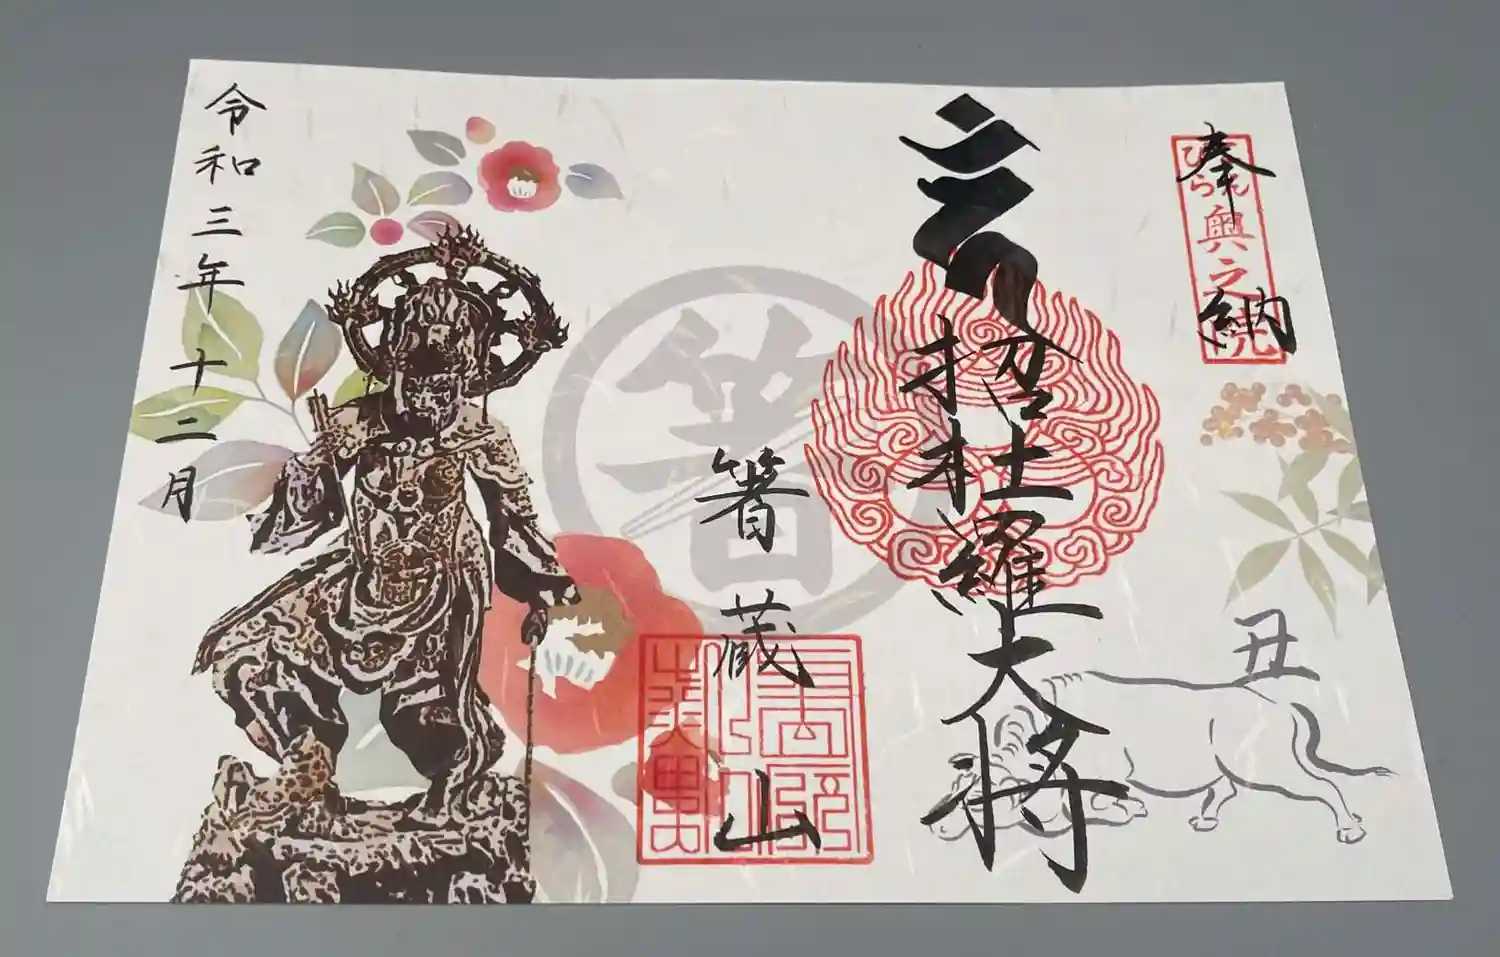 奉納
奥之院
招杜羅大将
丑
箸
箸蔵山
令和三年十二月